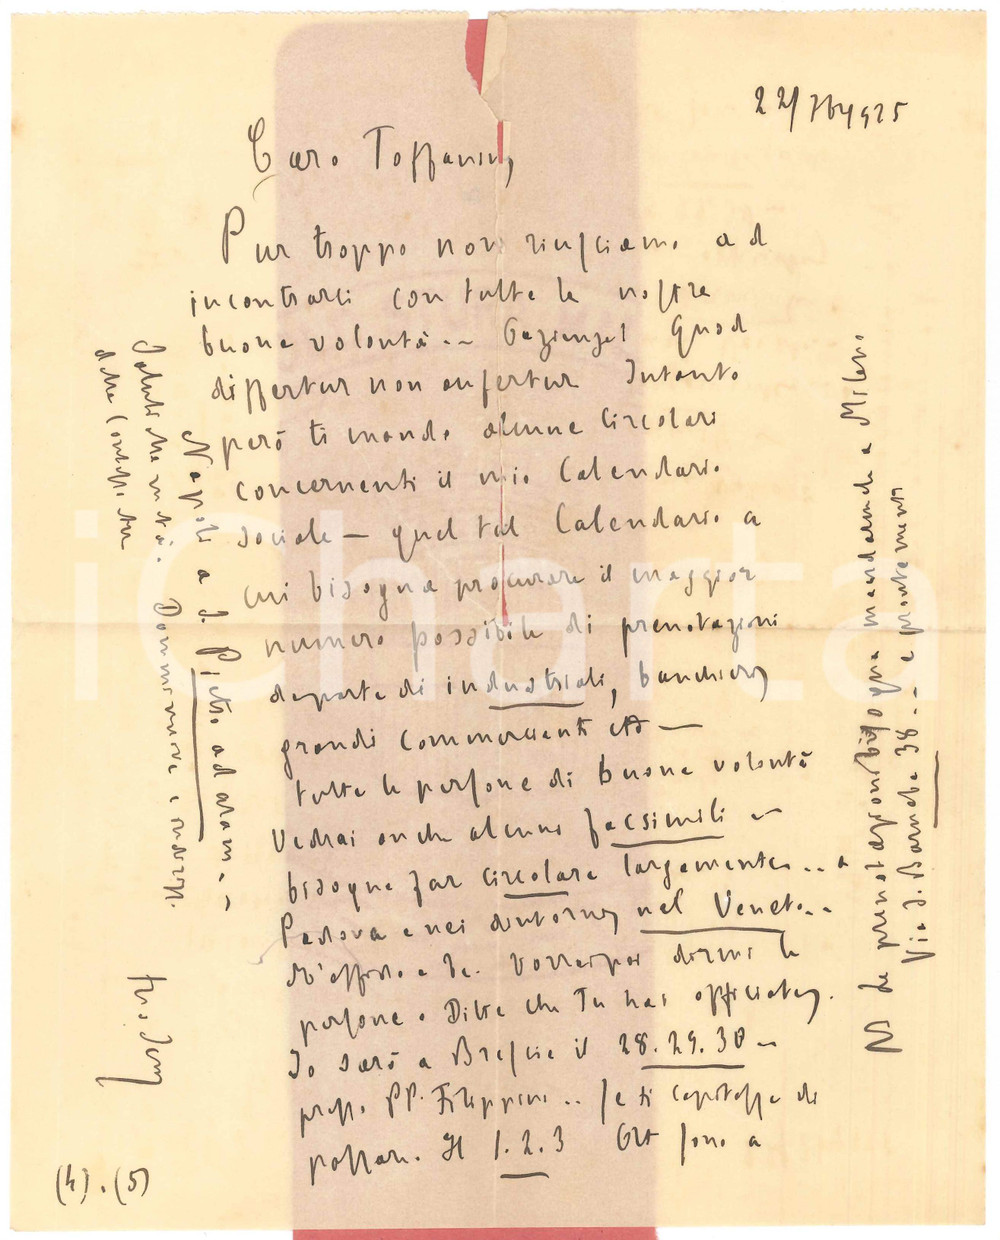 22/7bre 925
Caro Toffanin,
Pur troppo non riusciamo ad
incontrarci con tutta la nostra
buona volontà..
Quod
differtur non aufertur Intanto
però ti mando alcune Circolari
concernenti il mio Calendario
sociale — quel tal Calendario a
cui bisogna procurare il maggior
numero possibile di prenotazioni
da parte di industriali, banchieri,
grandi commercianti ecc —
tutte le persone di buona volontà
Vedrai anche alcuni facsimili —
bisogna far circolare largamente.. a
Padova e nei dintorni, nel Veneto..
Vorrei poi dirmi le
persone o Ditte che Tu hai officiate.
Io sarò a Brescia il 28.29.30 —
presso PP. Filippini .. se ti capitasse di
passare. Il 1.2.3 Ott sono a
(4).(5)
Napoli a S. Pietro ad aram. —
Saluti alla
della Contessa
Dammi nuove e indirizz.
tuo
N Le prenotazioni bisogna mandarle a Milano
Via S. Barnaba 38 — e prontamente
iCharta